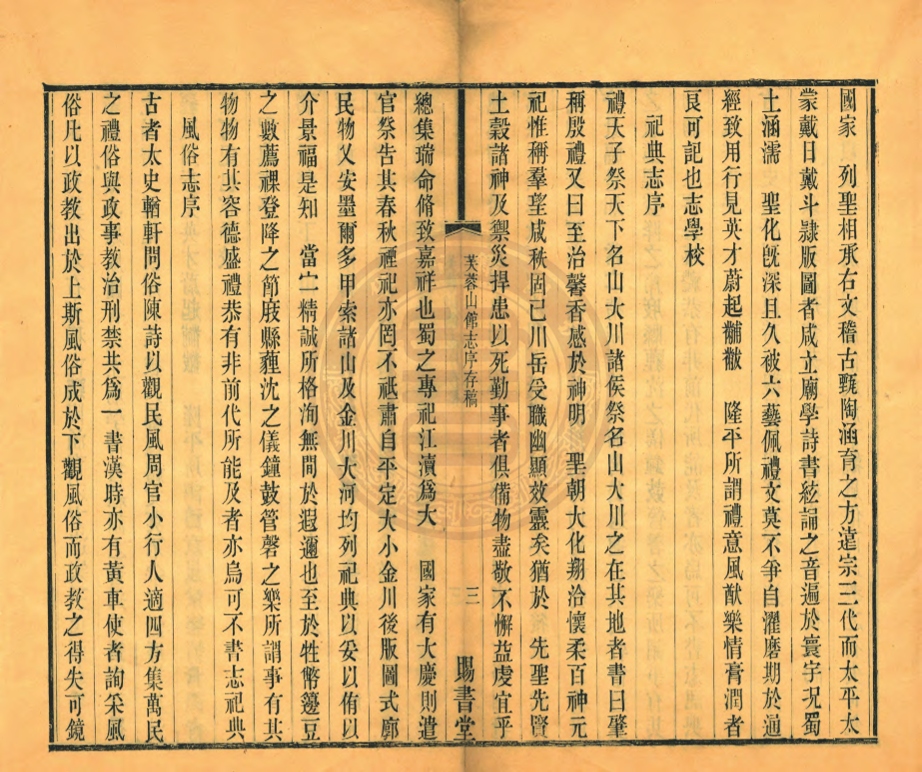 國家　列聖相承右文稽古甄陶涵育之方遠宗三代而太平太
蒙戴日戴斗隷版圖者咸立廟學詩書絃誦之音遍於寰宇況蜀
土涵濡　聖化旣深且久被六藝佩禮文莫不爭自濯磨期於通
經致用行見英才蔚起黼黻　隆平所謂禮意風猷樂情膏潤者
良可記也志學校
祀典志序
禮天子祭天下名山大川諸侯祭名山大川之在其地者書曰肇
稱殷禮又曰至治馨香感於神明　聖朝大化翔洽懷柔百神元
祀惟稱羣望咸秩固已川岳受職幽顯效靈矣猶於　先聖先賢
土穀諸神及禦災捍患以死勤事者俱備物盡敬不懈益虔宜乎
芙蓉山館志序存稿
三
賜書堂
總集瑞命脩致嘉祥也蜀之專祀江瀆爲大　國家有大慶則遣
官祭告其春秋禋祀亦罔不祗肅自平定大小金川後版圖式廓
民物乂安墨爾多甲索諸山及金川大河均列祀典以妥以侑以
介景福是知　當宁精誠所格洵無閒於遐邇也至於牲幣籩豆
之數薦祼登降之節庪縣薶沈之儀鐘鼓管磬之樂所謂事有其
物物有其容德盛禮恭有非前代所能及者亦烏可不書志祀典
風俗志序
古者太史輶軒問俗陳詩以觀民風周官小行人適四方集萬民
之禮俗與政事教治刑禁共爲一書漢時亦有黃車使者詢采風
俗凡以政教出於上斯風俗成於下觀風俗而政教之得失可鏡